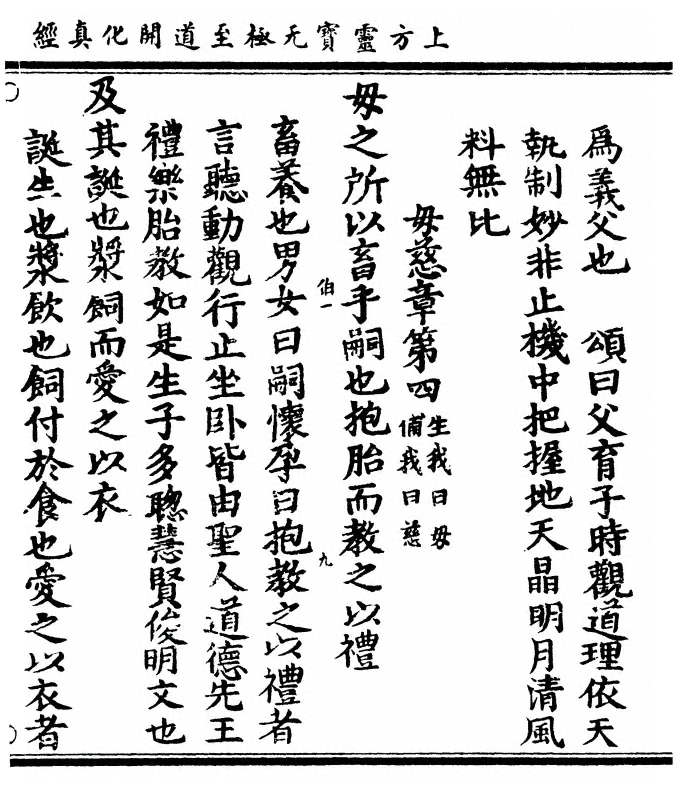 上方靈寶无極至道開化真經
爲義父也　頌曰父育子時觀道理依天
執制妙非止機中把握地天晶明月清風
料無比
母慈章第四 生我曰母 備我曰慈
母之所以畜乎嗣也抱胎而教之以禮
伯一　九
畜養也男女曰嗣懷孕曰抱教之以禮者
言聽動觀行止坐臥皆由聖人道德先王
禮樂胎教如是生子多聰慧賢俊明文也
及其誕也漿飼而愛之以衣
誕生也漿飲也飼付於食也愛之以衣者